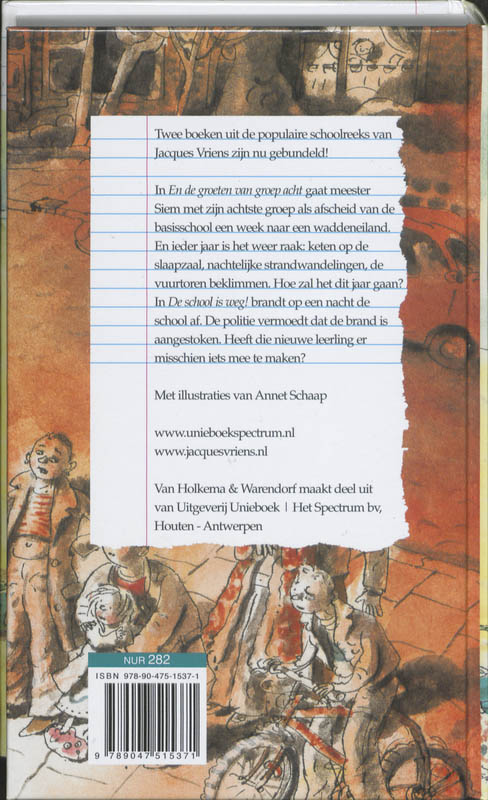 Twee boeken uit de populaire schoolreeks van
Jacques Vriens zijn nu gebundeld!
In En de groeten van groep acht gaat meester
Siem met zijn achtste groep als afscheid van de
basisschool een week naar een waddeneiland.
En ieder jaar is het weer raak: keten op de
slaapzaal, nachtelijke strandwandelingen, de
vuurtoren beklimmen. Hoe zal het dit jaar gaan?
In De school is weg! brandt op een nacht de
school af. De politie vermoedt dat de brand is
aangestoken. Heeft die nieuwe leerling er
misschien iets mee te maken?
Met illustraties van Annet Schaap
www.unieboekspectrum.nl
www.jacquesvriens.nl
Van Holkema & Warendorf maakt deel uit
van Uitgeverij Unieboek | Het Spectrum bv,
Houten - Antwerpen
NUR 282
ISBN 978-90-475-1537-1
9 789047 515371